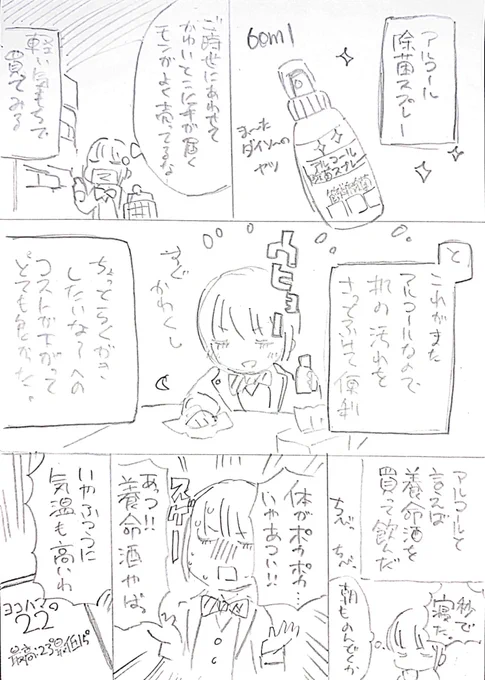 アルコール
除菌スプレー
60ml
まーた
ダイソーの
ヤツ
アルコール
除菌スプレー
ご時世にあわせて
かゆいとこに手が届く
モンがよく売ってるなぁ
軽い気もちで
買ってみる
と
これがまた
アルコールなので
机の汚れを
さっとふけて便利
ウヒョー
すぐ
かわくし
ちょっとらくがき
したいな〜への
コストが下がって
とても良かった。
アルコールと
言えば
養命酒を
買って飲んだ
ちびっ
ちび
秒で
寝た。
朝ものんでくか
体がポカポカ…
いやあつい!!
スゲー
あっつ!!
養命酒やばっ
いやふつうに
気温も高いわ
ヨコハマの
22
最高:23°最低15°